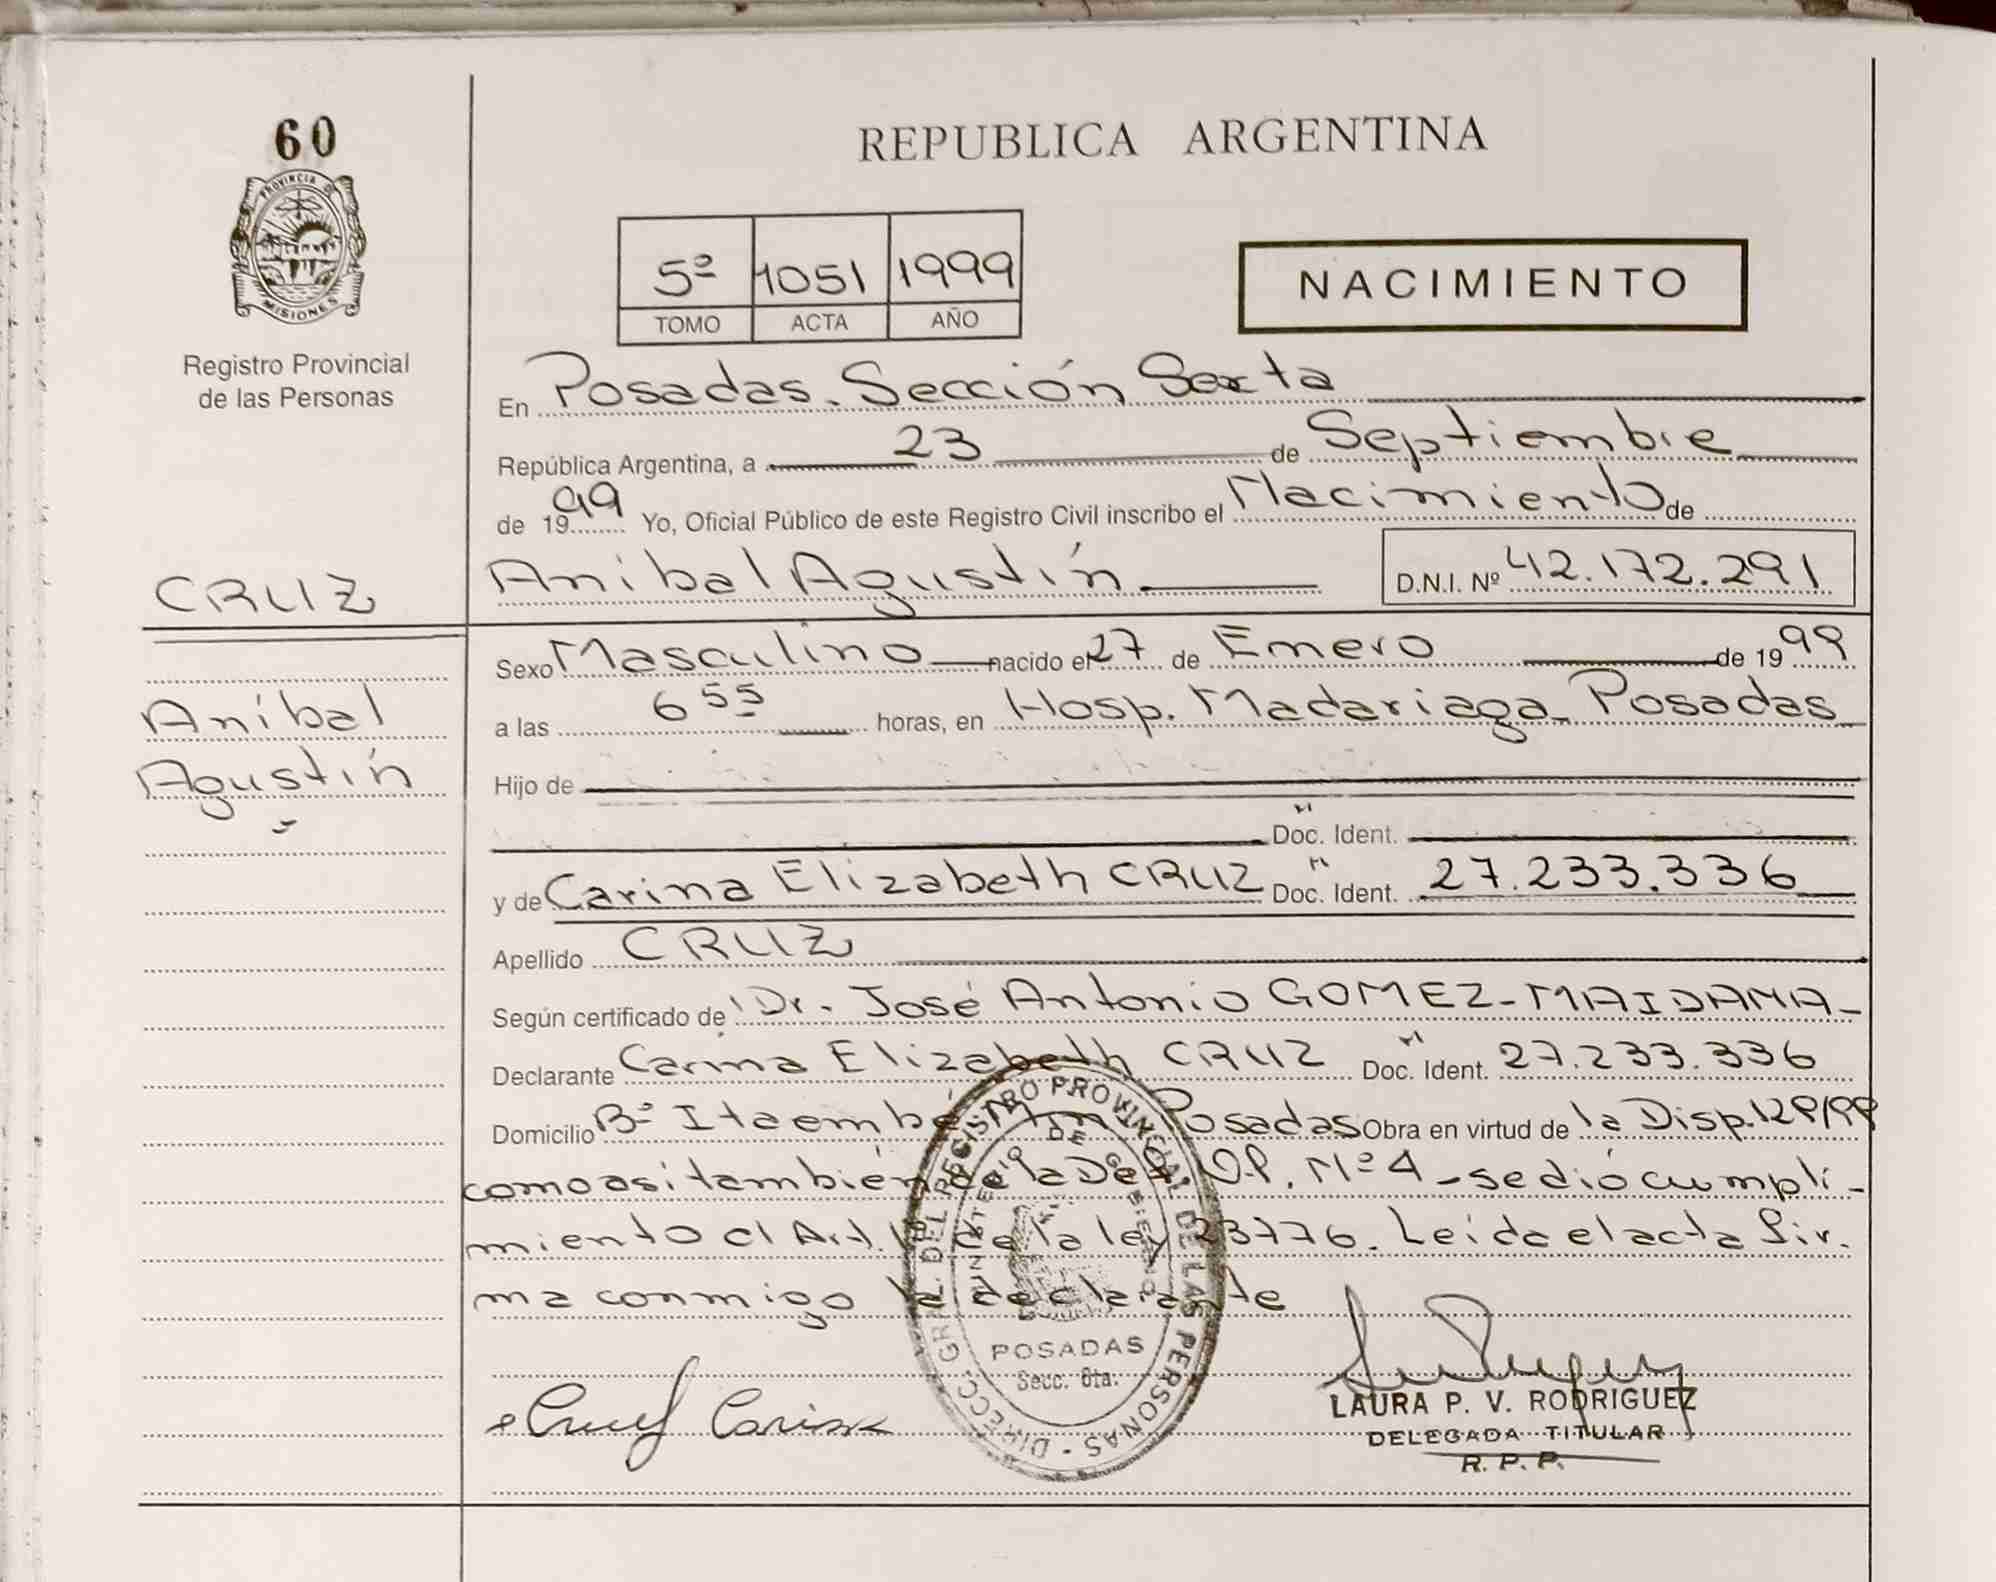 60
PROVINCIA DE
MISIONES
Registro Provincial
de las Personas
CRUZ
Aníbal
Agustín
REPUBLICA ARGENTINA
5º 1051 1999
TOMO ACTA AÑO
NACIMIENTO
En Posadas. Sección Sexta
República Argentina, a 23 de Septiembre
de 1999 Yo, Oficial Público de este Registro Civil inscribo el Nacimiento de
Aníbal Agustín D.N.I. Nº 42.172.291
Sexo Masculino nacido el 27 de Enero de 1999
a las 6 55 horas, en Hosp. Madariaga Posadas
Hijo de
Doc. Ident.
y de Carina Elizabeth CRUZ Doc. Ident. 27.233.336
Apellido CRUZ
Según certificado de Dr. José Antonio GOMEZ-MAIDANA-
Declarante Carina Elizabeth CRUZ Doc. Ident. 27.233.336
Domicilio Bº Itaembé Posadas Obra en virtud de la Disp. 129/99
como así también de la O.P. Nº 4 - se dió cumpli-
miento al Art. de la ley 23776. Leída el acta fir-
ma conmigo la declarante
DIRECC. GRAL. DEL REGISTRO PROVINCIAL DE LAS PERSONAS
MINISTERIO DE GOBIERNO
POSADAS
Secc. 6ta.
Cruz Carina
LAURA P. V. RODRIGUEZ
DELEGADA TITULAR
R. P. P.